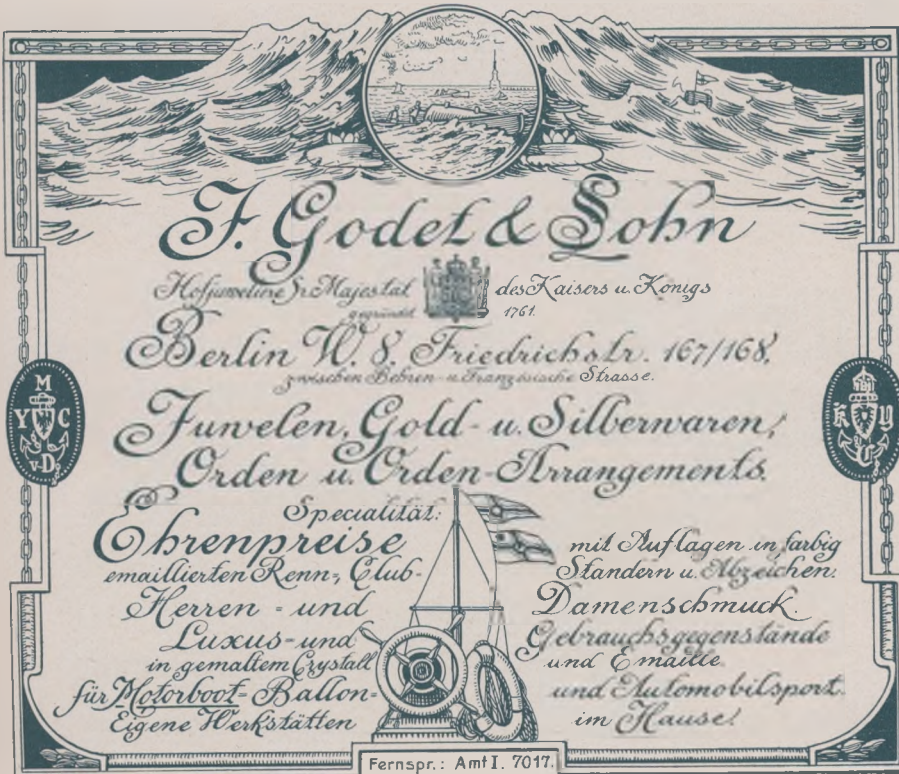 J. Godet & Sohn
Hofjuweliere Sr. Majestät des Kaisers u. Königs
gegründet 1761.
Berlin W. 8. Friedrichstr. 167/168.
zwischen Behren- u. Französische Strasse.
Juwelen, Gold- u. Silberwaren,
Orden u. Orden-Arrangements.
Specialität:
Ehrenpreise mit Auflagen in farbig
emaillierten Renn-, Club- Standern u. Abzeichen.
Herren- und Damenschmuck.
Luxus- und Gebrauchsgegenstände
in gemaltem Crystall und Emaille
für Motorboot- Ballon- und Automobilsport.
Eigene Werkstätten im Hause!
M
Y C
v. D.
K Y
C
Fernspr.: Amt I. 7017.